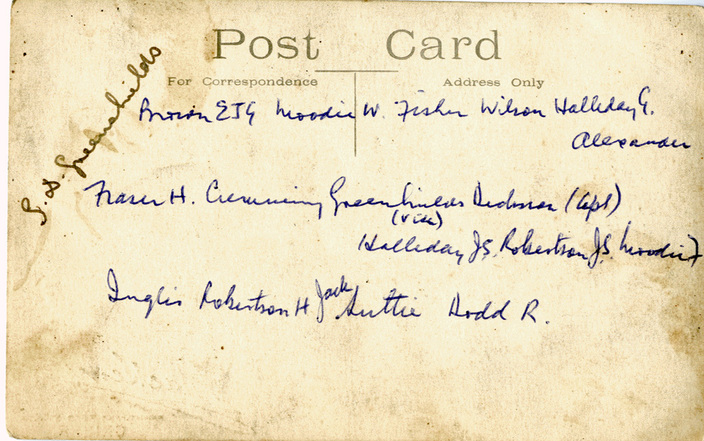 Post Card
For Correspondence Address Only
G. S. Greenshields
Brown EJG Moodie W. Fisher Wilson Halliday G.
Alexander
Fraser H. Cumming Greenshields Dickson (Capt)
(Vice)
Halliday J.S. Robertson J.S. Moodie
Inglis Robertson H Jack Suttie Dodd R.